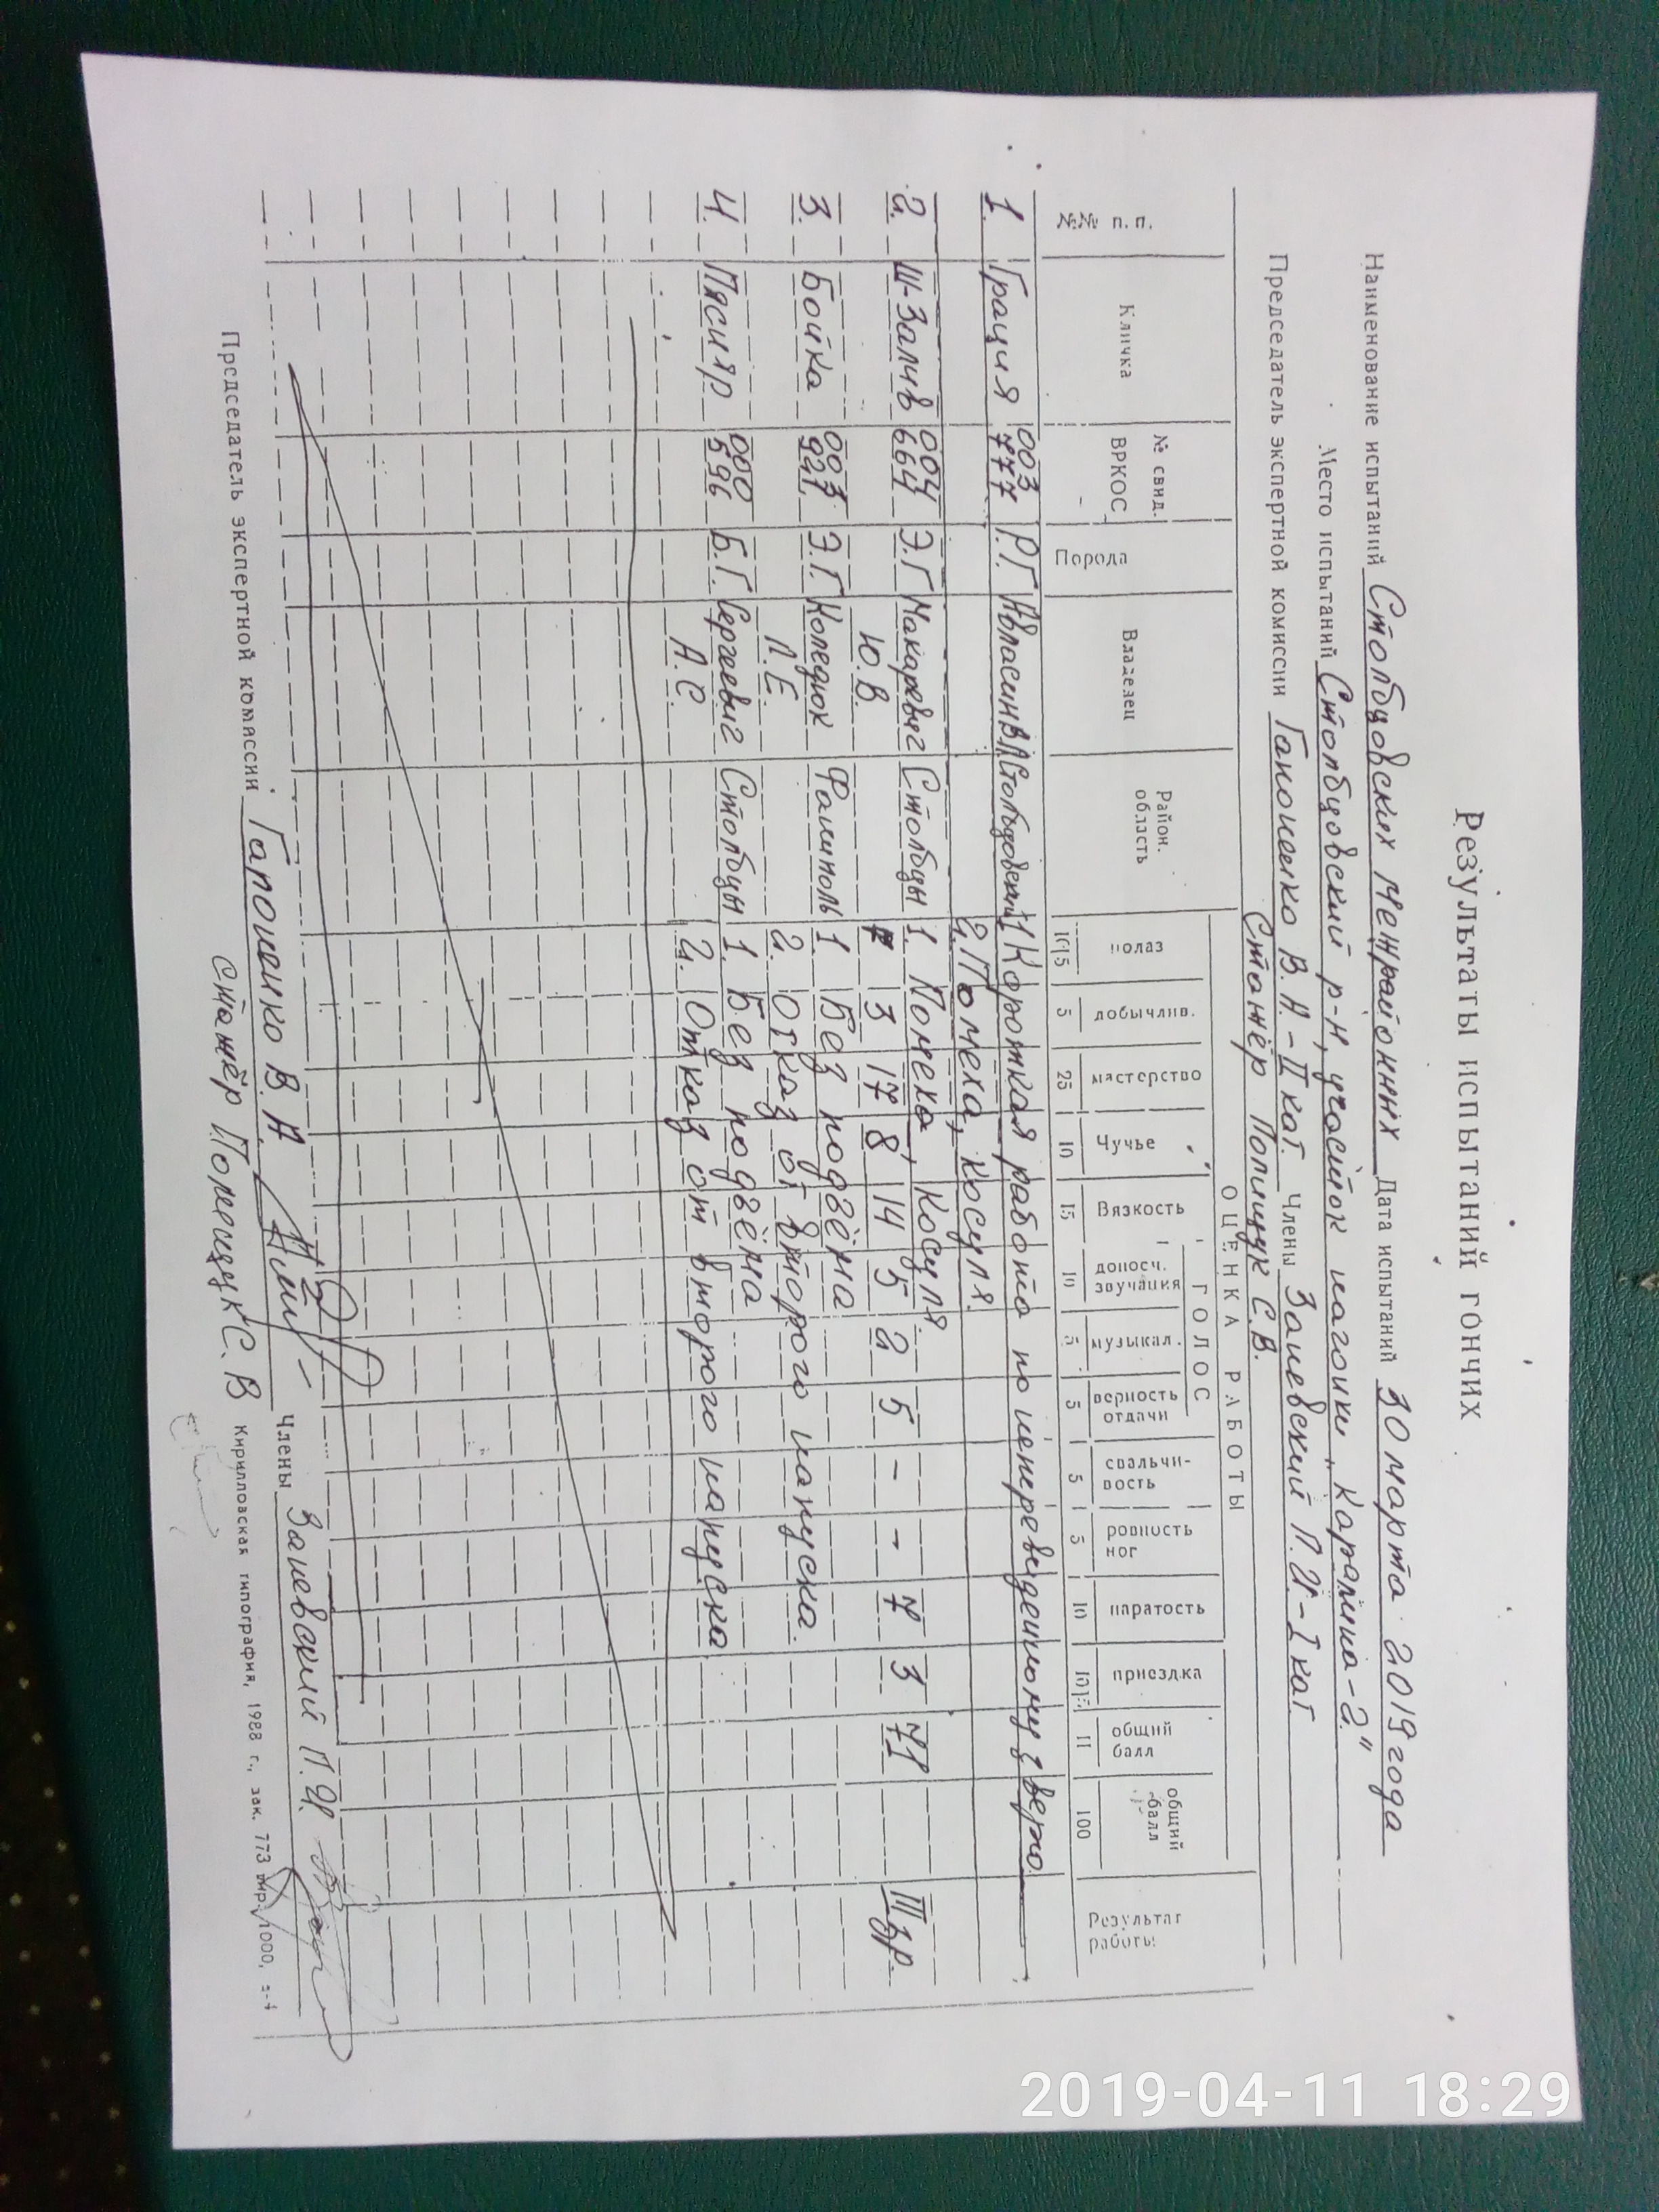 Результаты испытаний гончих
Наименование испытаний Столбцовских межрайонных Дата испытаний 30 марта 2019 года
Место испытаний Столбцовский р-н, участок нагонки „Каралина-2"
Председатель экспертной комиссии Гапоненко В.А-II кат. Члены Заневский П.И-I кат
Стажёр Полищук С.В.
ОЦЕНКА РАБОТЫ
ГОЛОС
№№ п.п. Кличка № свид. ВРКОС Порода Владелец Район. область полаз добычлив. мастерство Чучье Вязкость доносч. звучания музыкал. верность отдачи свальчивость ровность ног паратость приездка общий балл общий балл Результат работы
5 25 10 15 10 5 5 5 5 10 11 100
1. Грация 003 777 Р.Г. Столбцовский 1 Короткая работа по неперевиденному зверю
2. Помеха, косуля.
2. Ш-Залив 004 664 Э.Г Макаревич Столбцы 1. Помеха, косуля
Ю.В. 3 17 8 14 5 2 5 - - 7 3 71 III зр.
3. Бойка Э.Г. Коледюк Фаниполь 1. Без подъёма
Л.Е. 2. Отказ от второго напуска.
4. Пясняр 000 596 Б.Г. Сергеевич Столбцы 1. Без подъёма
А.С. 2. Отказ от второго напуска
Председатель экспертной комиссии Гапоненко В.А. Члены Заневский П.И.
Стажёр Полещук С.В
Кирилловская типография, 1988 г., зак. 773 тир. 1000, з-4
2019-04-11 18:29